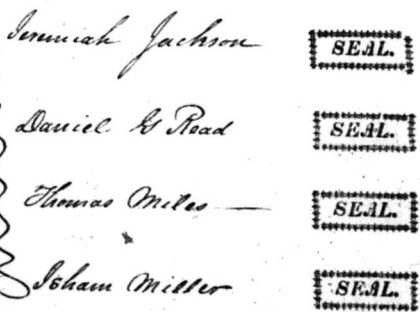 Jeremiah Jackson SEAL.
Daniel G Read SEAL.
Thomas Miles — SEAL.
Isham Miller SEAL.